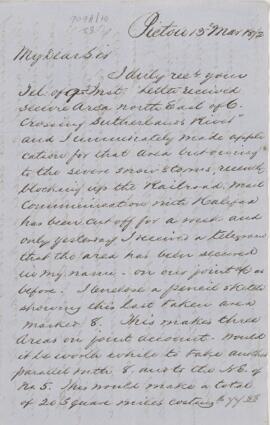 Pictou 13th Mar 1872
My Dear Sir
I duly recd your
Tel. of 9th Inst "Letter received
secure Area north East of C.
Crossing Sutherland's River"
and I immediately made appli
cation for that Area but owing
to the severe snow storms, recently
blocking up the Railroad, Mail
Communication with Halifax
has been cut off for a week and
only yesterday I received a telegram
that the area has been secured
in my name - on our joint % as
before. I enclose a pencil sketch
showing this last taken area
marked 8. This makes three
Areas on joint account. Would
it be worth while to take another
parallel with 8, and to the N.E. of
No 5. This would make a total
of 20 Square miles costing